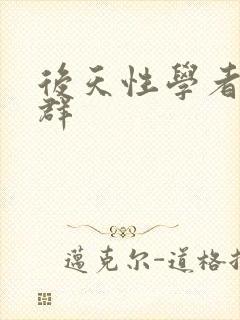 後天性學者
群
邁克尔-道格拉